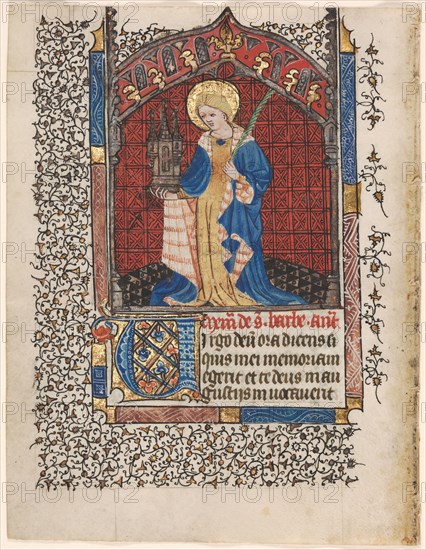 De s. barbe. ant.
irgo deū ora ducens si
quis mei memoriam
egerit et te deus in an
gustijs inuocauerit
PHOTO12